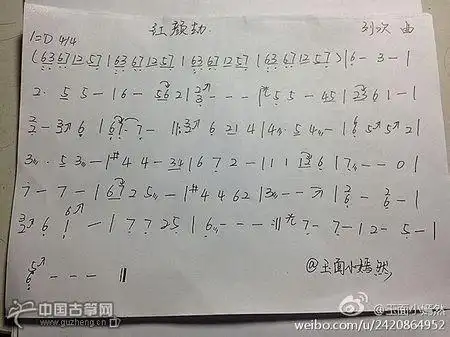 红颜劫
刘欢 曲
1=D 4/4
(6367 1257 | 6367 1257 | 6367 1257 | 6367 1257) | 6 - 3 - |
2· 5 5 - | 1 6 - 56 21 | 2/3 - - - | #5 5 - 45 | 123 6 1 - |
2/2 - 3 6 | 67 - 7 - ||: 3 6 21 4 | 4 5 4 - | 6 5 5 2 |
3 · 5 3 - | #4 4 - 34 | 6 7 2 - | 1 1 136 | 7 - - 0 |
7 - 7 - | 67 25 - | #4 4 62 | 3 - - | 2/6 - 2/6 - |
3/2 6 1 - | 7 7 25 | 6 - - - :|| 7 - 7 - | 2 - 5 - |
5/6 - - - ||
@玉面小嫣然
中国古筝网
www.guzheng.cn
@玉面小嫣然
weibo.com/u/2420864952